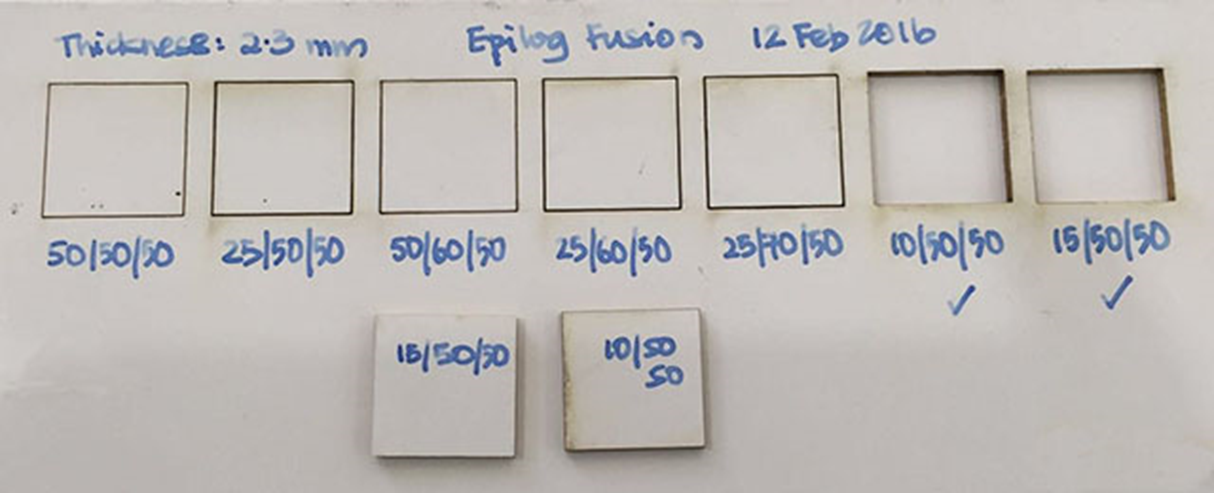 Thickness: 2.3 mm Epilog Fusion 12 Feb 2016
50/50/50 25/50/50 50/60/50 25/60/50 25/70/50 10/50/50 15/50/50
✓ ✓
15/50/50 10/50
50